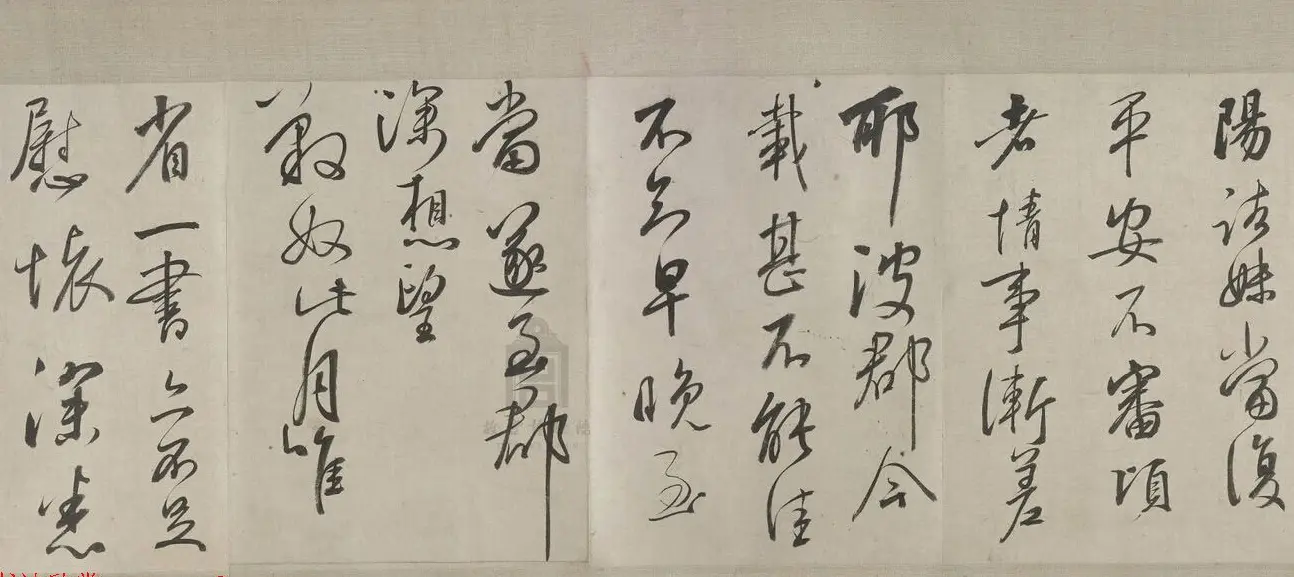 陽諸妹當復
平安不審頃
者情事漸差
耶彼郡今
載甚不能佳
不知早晚至
當遂至郡
深想望
奴此月唯
省一書亦不足
慰懷深